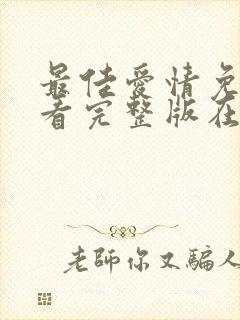 最佳愛情免
看完整版在
老師你又騙人